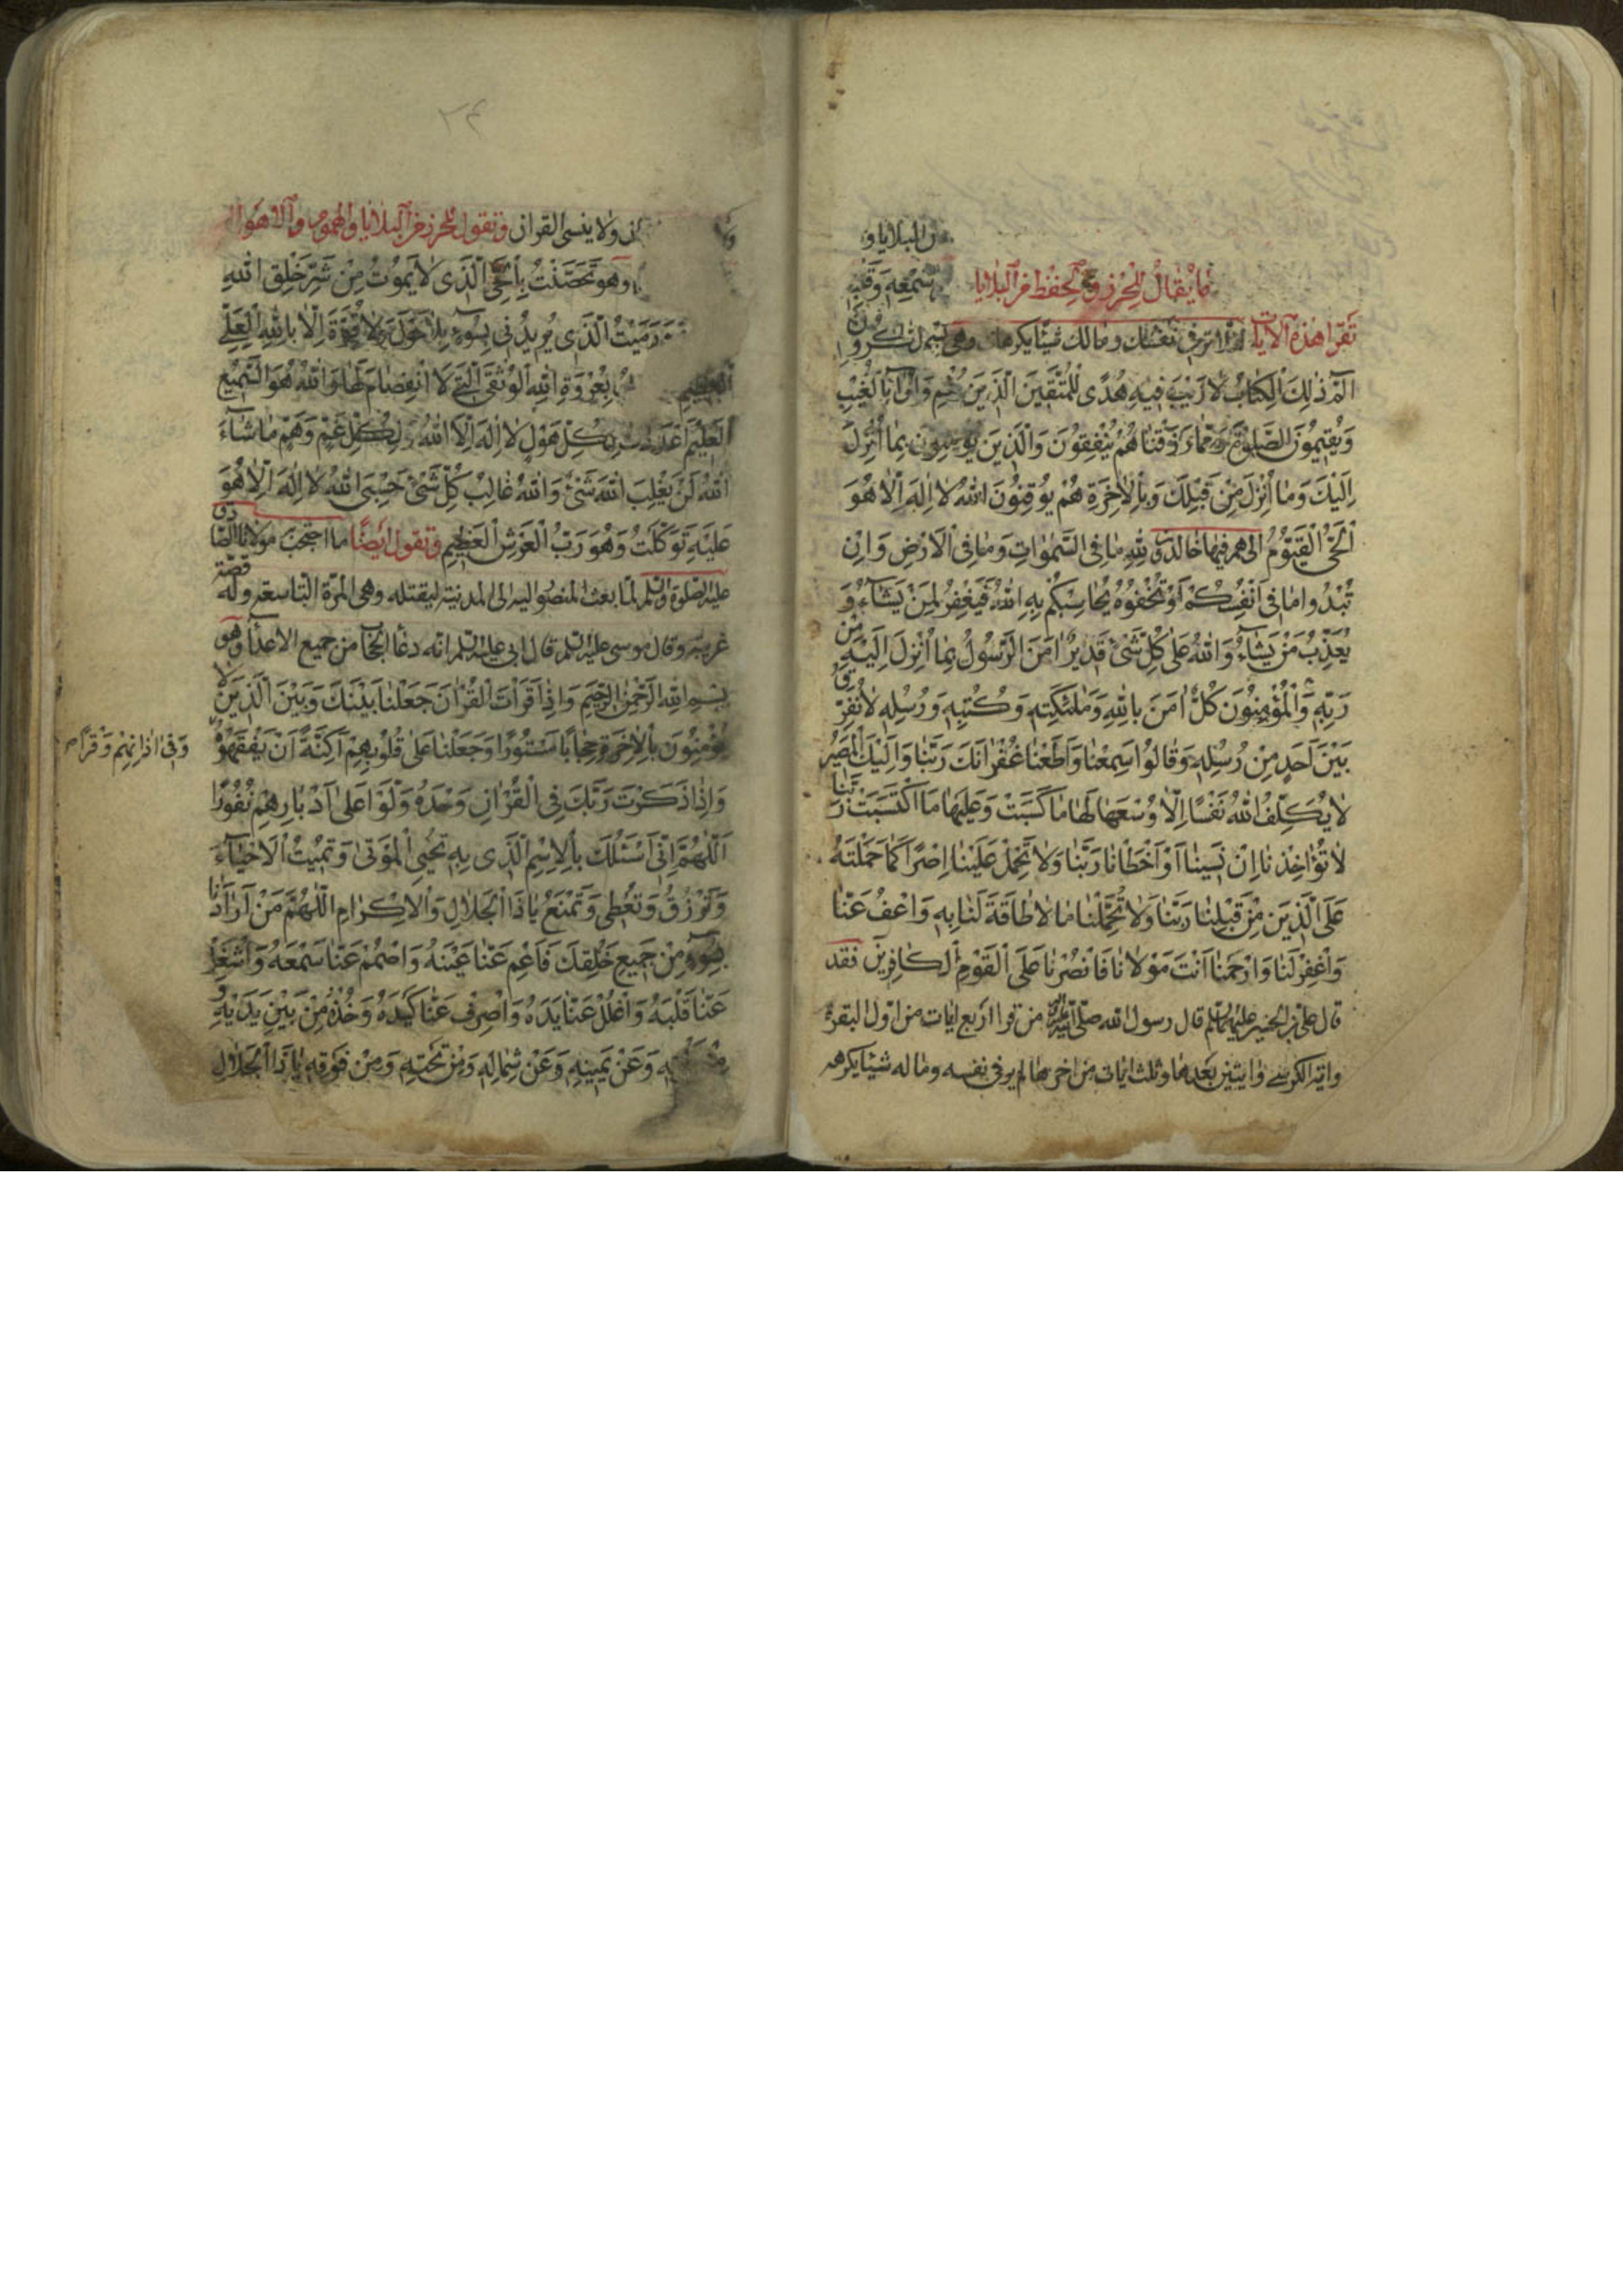 البلايا و
ما يُقالُ للحِرْزِ و الحِفْظِ مِنَ البَلايا سَمْعِهِ وَ
تَقرَأ هذه الآيات نفسك ومالك شيئا يكرهك وهى
الٓمٓ ذٰلِكَ الْكِتَابُ لَا رَيْبَ فِيهِ هُدًى لِلْمُتَّقِينَ الَّذِينَ بِالْغَيْبِ
وَيُقِيمُونَ الصَّلٰوةَ وَمِمَّا رَزَقْنَاهُمْ يُنْفِقُونَ وَالَّذِينَ يُؤْمِنُونَ بِمَا أُنْزِلَ
اِلَيْكَ وَمَا أُنْزِلَ مِنْ قَبْلِكَ وَبِالْاٰخِرَةِ هُمْ يُوقِنُونَ اللّٰهُ لَا اِلٰهَ اِلَّا هُوَ
الْحَىُّ الْقَيُّومُ الى هم فيها خالدون لِلّٰهِ مَا فِى السَّمٰوَاتِ وَمَا فِى الْاَرْضِ وَاِنْ
تُبْدُوا مَا فِى اَنْفُسِكُمْ اَوْ تُخْفُوهُ يُحَاسِبْكُمْ بِهِ اللّٰهُ فَيَغْفِرُ لِمَنْ يَشَاءُ وَ
يُعَذِّبُ مَنْ يَشَاءُ وَاللّٰهُ عَلَى كُلِّ شَىْءٍ قَدِيرٌ اٰمَنَ الرَّسُولُ بِمَا اُنْزِلَ اِلَيْهِ مِنْ
رَبِّهِ وَالْمُؤْمِنُونَ كُلٌّ اٰمَنَ بِاللّٰهِ وَمَلٰئِكَتِهِ وَكُتُبِهِ وَرُسُلِهِ لَا نُفَرِّقُ
بَيْنَ اَحَدٍ مِنْ رُسُلِهِ وَقَالُوا سَمِعْنَا وَاَطَعْنَا غُفْرَانَكَ رَبَّنَا وَاِلَيْكَ الْمَصِيرُ
لَا يُكَلِّفُ اللّٰهُ نَفْسًا اِلَّا وُسْعَهَا لَهَا مَا كَسَبَتْ وَعَلَيْهَا مَا اكْتَسَبَتْ رَبَّنَا
لَا تُؤَاخِذْنَا اِنْ نَسِينَا اَوْ اَخْطَأْنَا رَبَّنَا وَلَا تَحْمِلْ عَلَيْنَا اِصْرًا كَمَا حَمَلْتَهُ
عَلَى الَّذِينَ مِنْ قَبْلِنَا رَبَّنَا وَلَا تُحَمِّلْنَا مَا لَا طَاقَةَ لَنَا بِهِ وَاعْفُ عَنَّا
وَاغْفِرْ لَنَا وَارْحَمْنَا اَنْتَ مَوْلَانَا فَانْصُرْنَا عَلَى الْقَوْمِ الْكَافِرِينَ فقد
قال على بن الحسين عليهما السلم قال رسول الله صلى الله عليه وآله من قرا اربع ايات من اوّل البقرة
واية الكرسى وايتين بعدها وثلث ايات من اخرها لم ير فى نفسه وماله شيئا يكرهه
۲۴
ولا ينسى القران وتقول للحرز من البلايا والهموم والاهوال
وهو تَحَصَّنْتُ بِالْحَىِّ الَّذِى لَا يَمُوتُ مِنْ شَرِّ خَلْقِ اللّٰهِ
وَرَمَيْتُ الَّذِى يُرِيدُنِى بِسُوءٍ بِلَا حَوْلَ وَلَا قُوَّةَ اِلَّا بِاللّٰهِ الْعَلِىِّ
الْعَظِيمِ بِعُرْوَةِ اللّٰهِ الْوُثْقَى الَّتِى لَا انْفِصَامَ لَهَا وَاللّٰهُ هُوَ السَّمِيعُ
الْعَلِيمُ اَعْدَدْتُ لِكُلِّ هَوْلٍ لَا اِلٰهَ اِلَّا اللّٰهُ وَلِكُلِّ غَمٍّ وَهَمٍّ مَا شَاءَ
اللّٰهُ لَنْ يَغْلِبَ اللّٰهَ شَىْءٌ وَاللّٰهُ غَالِبُ كُلِّ شَىْءٍ حَسْبِىَ اللّٰهُ لَا اِلٰهَ اِلَّا هُوَ
عَلَيْهِ تَوَكَّلْتُ وَهُوَ رَبُّ الْعَرْشِ الْعَظِيمِ وتقول ايضًا ما احتجب مولانا الصادق
عليه الصلوة والسلم لمّا بعث المنصور اليه الى المدينة ليقتله وهى المرّة التاسعة وله قصّة
غريبة وقال موسى عليه السلم قال ابى عليه السلم انه دعا الحجاب من جميع الاعداء وهو
بِسْمِ اللّٰهِ الرَّحْمٰنِ الرَّحِيمِ وَاِذَا قَرَاْتَ الْقُرْاٰنَ جَعَلْنَا بَيْنَكَ وَبَيْنَ الَّذِينَ لَا
يُؤْمِنُونَ بِالْاٰخِرَةِ حِجَابًا مَسْتُورًا وَجَعَلْنَا عَلَى قُلُوبِهِمْ اَكِنَّةً اَنْ يَفْقَهُوهُ
وَفِى اٰذَانِهِمْ وَقْرًا صح
وَاِذَا ذَكَرْتَ رَبَّكَ فِى الْقُرْاٰنِ وَحْدَهُ وَلَّوْا عَلَى اَدْبَارِهِمْ نُفُورًا
اَللّٰهُمَّ اِنِّى اَسْئَلُكَ بِالْاِسْمِ الَّذِى بِهِ تُحْيِى الْمَوْتَى وَتُمِيتُ الْاَحْيَاءَ
وَتَرْزُقُ وَتُعْطِى وَتَمْنَعُ يَا ذَا الْجَلَالِ وَالْاِكْرَامِ اللّٰهُمَّ مَنْ اَرَادَنَا
بِسُوءٍ مِنْ جَمِيعِ خَلْقِكَ فَاَعْمِ عَنَّا عَيْنَهُ وَاصْمُمْ عَنَّا سَمْعَهُ وَاشْغَلْ
عَنَّا قَلْبَهُ وَاغْلُلْ عَنَّا يَدَهُ وَاصْرِفْ عَنَّا كَيْدَهُ وَخُذْهُ مِنْ بَيْنِ يَدَيْهِ وَ
وَعَنْ يَمِينِهِ وَعَنْ شِمَالِهِ وَمِنْ تَحْتِهِ وَمِنْ فَوْقِهِ يَا ذَا الْجَلَالِ